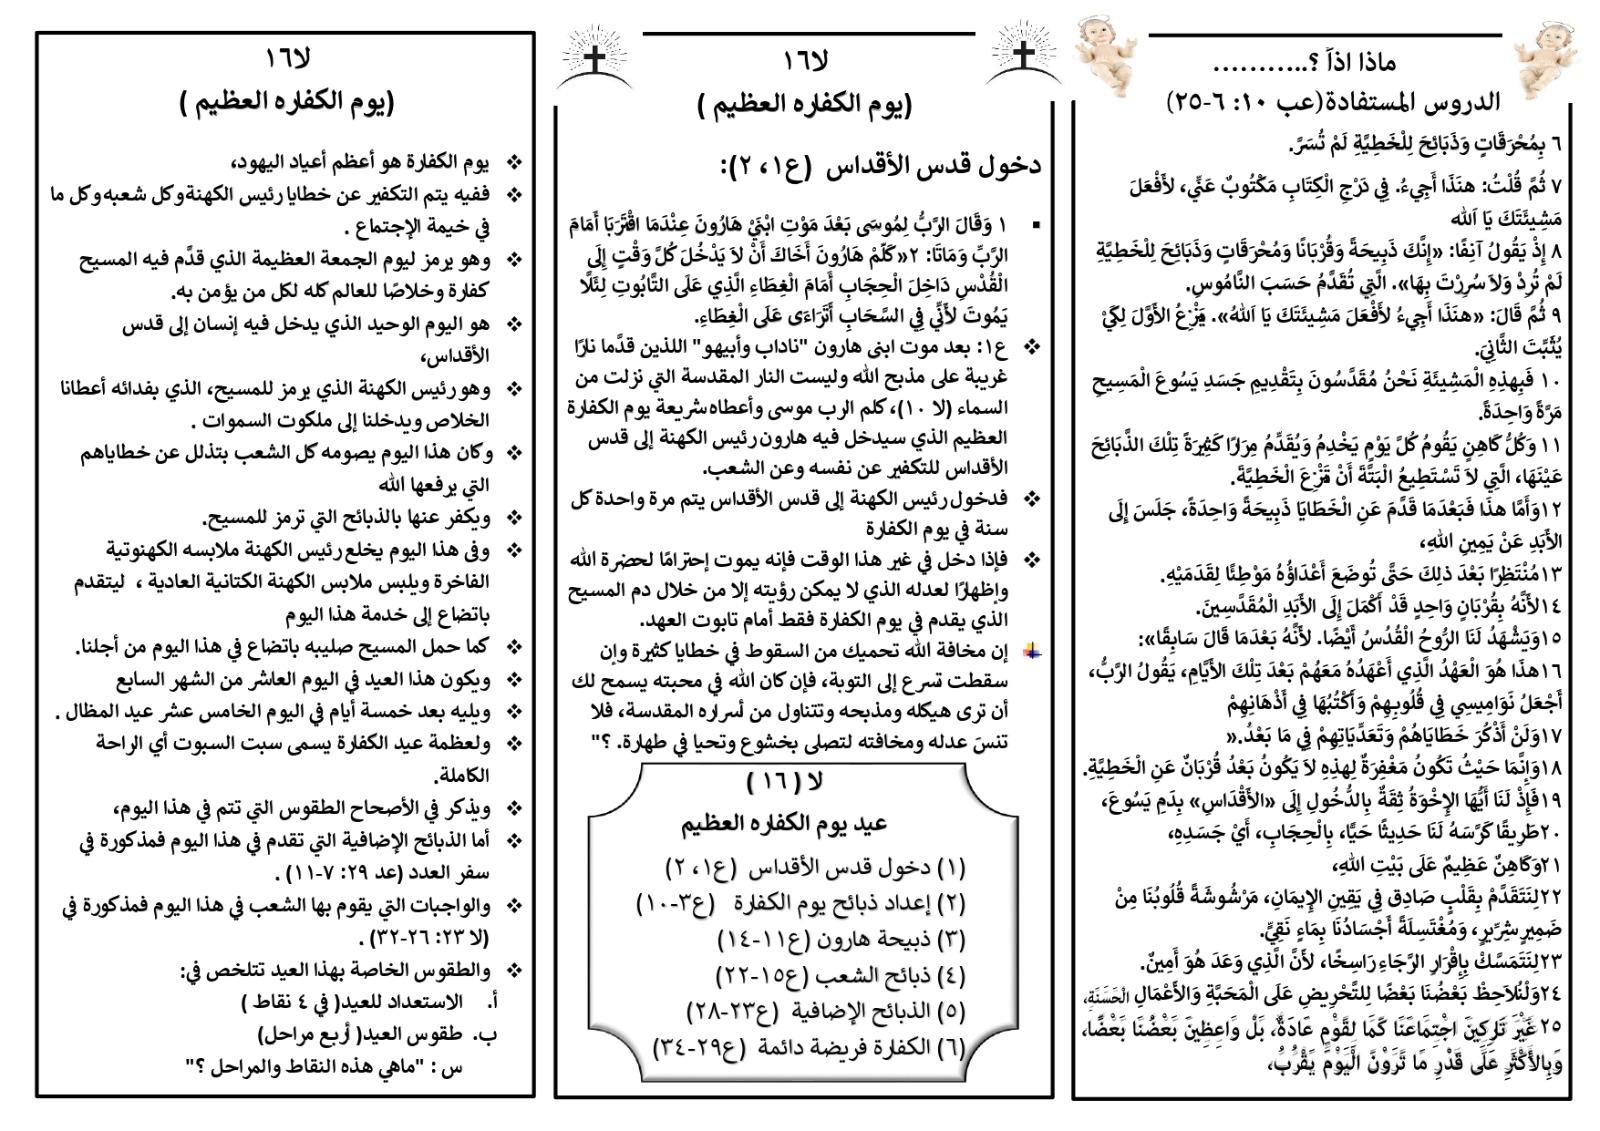 ماذا اذاً ؟...........
الدروس المستفادة(عب ١٠: ٦-٢٥)
٦ بِمُحْرَقَاتٍ وَذَبَائِحَ لِلْخَطِيَّةِ لَمْ تُسَرَّ.
٧ ثُمَّ قُلْتُ: هنَذَا أَجِيءُ. فِي دَرْجِ الْكِتَابِ مَكْتُوبٌ عَنِّي، لأَفْعَلَ
مَشِيئَتَكَ يَا اَلله
٨ إِذْ يَقُولُ آنِفًا: «إِنَّكَ ذَبِيحَةً وَقُرْبَانًا وَمُحْرَقَاتٍ وَذَبَائِحَ لِلْخَطِيَّةِ
لَمْ تُرِدْ وَلاَ سُرِرْتَ بِهَا». الَّتِي تُقَدَّمُ حَسَبَ النَّامُوسِ.
٩ ثُمَّ قَالَ: «هنَذَا أَجِيءُ لأَفْعَلَ مَشِيئَتَكَ يَا اَللهُ». يَنْزِعُ الأَوَّلَ لِكَيْ
يُثَبِّتَ الثَّانِيَ.
١٠ فَبِهذِهِ الْمَشِيئَةِ نَحْنُ مُقَدَّسُونَ بِتَقْدِيمِ جَسَدِ يَسُوعَ الْمَسِيحِ
مَرَّةً وَاحِدَةً.
١١ وَكُلُّ كَاهِنٍ يَقُومُ كُلَّ يَوْمٍ يَخْدِمُ وَيُقَدِّمُ مِرَارًا كَثِيرَةً تِلْكَ الذَّبَائِحَ
عَيْنَهَا، الَّتِي لاَ تَسْتَطِيعُ الْبَتَّةَ أَنْ تَنْزِعَ الْخَطِيَّةَ.
١٢وَأَمَّا هذَا فَبَعْدَمَا قَدَّمَ عَنِ الْخَطَايَا ذَبِيحَةً وَاحِدَةً، جَلَسَ إِلَى
الأَبَدِ عَنْ يَمِينِ اللهِ،
١٣مُنْتَظِرًا بَعْدَ ذلِكَ حَتَّى تُوضَعَ أَعْدَاؤُهُ مَوْطِئًا لِقَدَمَيْهِ.
١٤لأَنَّهُ بِقُرْبَانٍ وَاحِدٍ قَدْ أَكْمَلَ إِلَى الأَبَدِ الْمُقَدَّسِينَ.
١٥وَيَشْهَدُ لَنَا الرُّوحُ الْقُدُسُ أَيْضًا. لأَنَّهُ بَعْدَمَا قَالَ سَابِقًا»:
١٦هذَا هُوَ الْعَهْدُ الَّذِي أَعْهَدُهُ مَعَهُمْ بَعْدَ تِلْكَ الأَيَّامِ، يَقُولُ الرَّبُّ،
أَجْعَلُ نَوَامِيسِي فِي قُلُوبِهِمْ وَأَكْتُبُهَا فِي أَذْهَانِهِمْ
١٧وَلَنْ أَذْكُرَ خَطَايَاهُمْ وَتَعَدِّيَاتِهِمْ فِي مَا بَعْدُ.«
١٨وَإِنَّمَا حَيْثُ تَكُونُ مَغْفِرَةٌ لِهذِهِ لاَ يَكُونُ بَعْدُ قُرْبَانٌ عَنِ الْخَطِيَّةِ.
١٩فَإِذْ لَنَا أَيُّهَا الإِخْوَةُ ثِقَةٌ بِالدُّخُولِ إِلَى «الأَقْدَاسِ» بِدَمِ يَسُوعَ،
٢٠طَرِيقًا كَرَّسَهُ لَنَا حَدِيثًا حَيًّا، بِالْحِجَابِ، أَيْ جَسَدِهِ،
٢١وَكَاهِنٌ عَظِيمٌ عَلَى بَيْتِ اللهِ،
٢٢لِنَتَقَدَّمْ بِقَلْبٍ صَادِقٍ فِي يَقِينِ الإِيمَانِ، مَرْشُوشَةً قُلُوبُنَا مِنْ
ضَمِيرٍ شِرِّيرٍ، وَمُغْتَسِلَةً أَجْسَادُنَا بِمَاءٍ نَقِيٍّ.
٢٣لِنَتَمَسَّكْ بِإِقْرَارِ الرَّجَاءِ رَاسِخًا، لأَنَّ الَّذِي وَعَدَ هُوَ أَمِينٌ.
٢٤وَلْنُلاَحِظْ بَعْضُنَا بَعْضًا لِلتَّحْرِيضِ عَلَى الْمَحَبَّةِ وَالأَعْمَالِ الْحَسَنَةِ،
٢٥ غَيْرَ تَارِكِينَ اجْتِمَاعَنَا كَمَا لِقَوْمٍ عَادَةٌ، بَلْ وَاعِظِينَ بَعْضُنَا بَعْضًا،
وَبِالأَكْثَرِ عَلَى قَدْرِ مَا تَرَوْنَ الْيَوْمَ يَقْرُبُ،
لا١٦
(يوم الكفاره العظيم )
دخول قدس الأقداس (ع١، ٢):
▪ ١ وَقَالَ الرَّبُّ لِمُوسَى بَعْدَ مَوْتِ ابْنَيْ هَارُونَ عِنْدَمَا اقْتَرَبَا أَمَامَ
الرَّبِّ وَمَاتَا: ٢«كَلِّمْ هَارُونَ أَخَاكَ أَنْ لاَ يَدْخُلَ كُلَّ وَقْتٍ إِلَى
الْقُدْسِ دَاخِلَ الْحِجَابِ أَمَامَ الْغِطَاءِ الَّذِي عَلَى التَّابُوتِ لِئَلَّا
يَمُوتَ لأَنِّي فِي السَّحَابِ أَتَرَاءَى عَلَى الْغِطَاءِ.
❖ ع١: بعد موت ابنى هارون "ناداب وأبيهو" اللذين قدَّما نارًا
غريبة على مذبح الله وليست النار المقدسة التي نزلت من
السماء (لا ١٠)، كلم الرب موسى وأعطاه شريعة يوم الكفارة
العظيم الذي سيدخل فيه هارون رئيس الكهنة إلى قدس
الأقداس للتكفير عن نفسه وعن الشعب.
❖ فدخول رئيس الكهنة إلى قدس الأقداس يتم مرة واحدة كل
سنة في يوم الكفارة
❖ فإذا دخل في غير هذا الوقت فإنه يموت إحترامًا لحضرة الله
وإظهارًا لعدله الذي لا يمكن رؤيته إلا من خلال دم المسيح
الذي يقدم في يوم الكفارة فقط أمام تابوت العهد.
إن مخافة الله تحميك من السقوط في خطايا كثيرة وإن
سقطت تسرع إلى التوبة، فإن كان الله في محبته يسمح لك
أن ترى هيكله ومذبحه وتتناول من أسراره المقدسة، فلا
تنسَ عدله ومخافته لتصلى بخشوع وتحيا في طهارة. ؟"
لا ( ١٦ )
عيد يوم الكفاره العظيم
(١) دخول قدس الأقداس (ع١، ٢)
(٢) إعداد ذبائح يوم الكفارة (ع٣-١٠)
(٣) ذبيحة هارون (ع١١-١٤)
(٤) ذبائح الشعب (ع١٥-٢٢)
(٥) الذبائح الإضافية (ع٢٣-٢٨)
(٦) الكفارة فريضة دائمة (ع٢٩-٣٤)
لا١٦
(يوم الكفاره العظيم )
❖ يوم الكفارة هو أعظم أعياد اليهود،
❖ ففيه يتم التكفير عن خطايا رئيس الكهنة وكل شعبه وكل ما
في خيمة الإجتماع .
❖ وهو يرمز ليوم الجمعة العظيمة الذي قدَّم فيه المسيح
كفارة وخلاصًا للعالم كله لكل من يؤمن به.
❖ هو اليوم الوحيد الذي يدخل فيه إنسان إلى قدس
الأقداس،
❖ وهو رئيس الكهنة الذي يرمز للمسيح، الذي بفدائه أعطانا
الخلاص ويدخلنا إلى ملكوت السموات .
❖ وكان هذا اليوم يصومه كل الشعب بتذلل عن خطاياهم
التي يرفعها الله
❖ ويكفر عنها بالذبائح التي ترمز للمسيح.
❖ وفى هذا اليوم يخلع رئيس الكهنة ملابسه الكهنوتية
الفاخرة ويلبس ملابس الكهنة الكتانية العادية ، ليتقدم
باتضاع إلى خدمة هذا اليوم
❖ كما حمل المسيح صليبه باتضاع في هذا اليوم من أجلنا.
❖ ويكون هذا العيد في اليوم العاشر من الشهر السابع
❖ ويليه بعد خمسة أيام في اليوم الخامس عشر عيد المظال .
❖ ولعظمة عيد الكفارة يسمى سبت السبوت أي الراحة
الكاملة.
❖ ويذكر في الأصحاح الطقوس التي تتم في هذا اليوم،
❖ أما الذبائح الإضافية التي تقدم في هذا اليوم فمذكورة في
سفر العدد (عد ٢٩: ٧-١١) .
❖ والواجبات التي يقوم بها الشعب في هذا اليوم فمذكورة في
(لا ٢٣: ٢٦-٣٢) .
❖ والطقوس الخاصة بهذا العيد تتلخص في:
أ. الاستعداد للعيد( في ٤ نقاط )
ب. طقوس العيد( أربع مراحل)
س : "ماهي هذه النقاط والمراحل ؟"